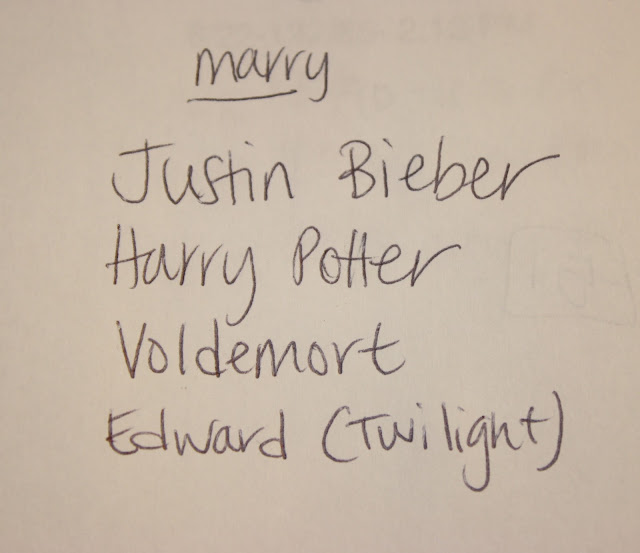 marry
Justin Bieber
Harry Potter
Voldemort
Edward (Twilight)